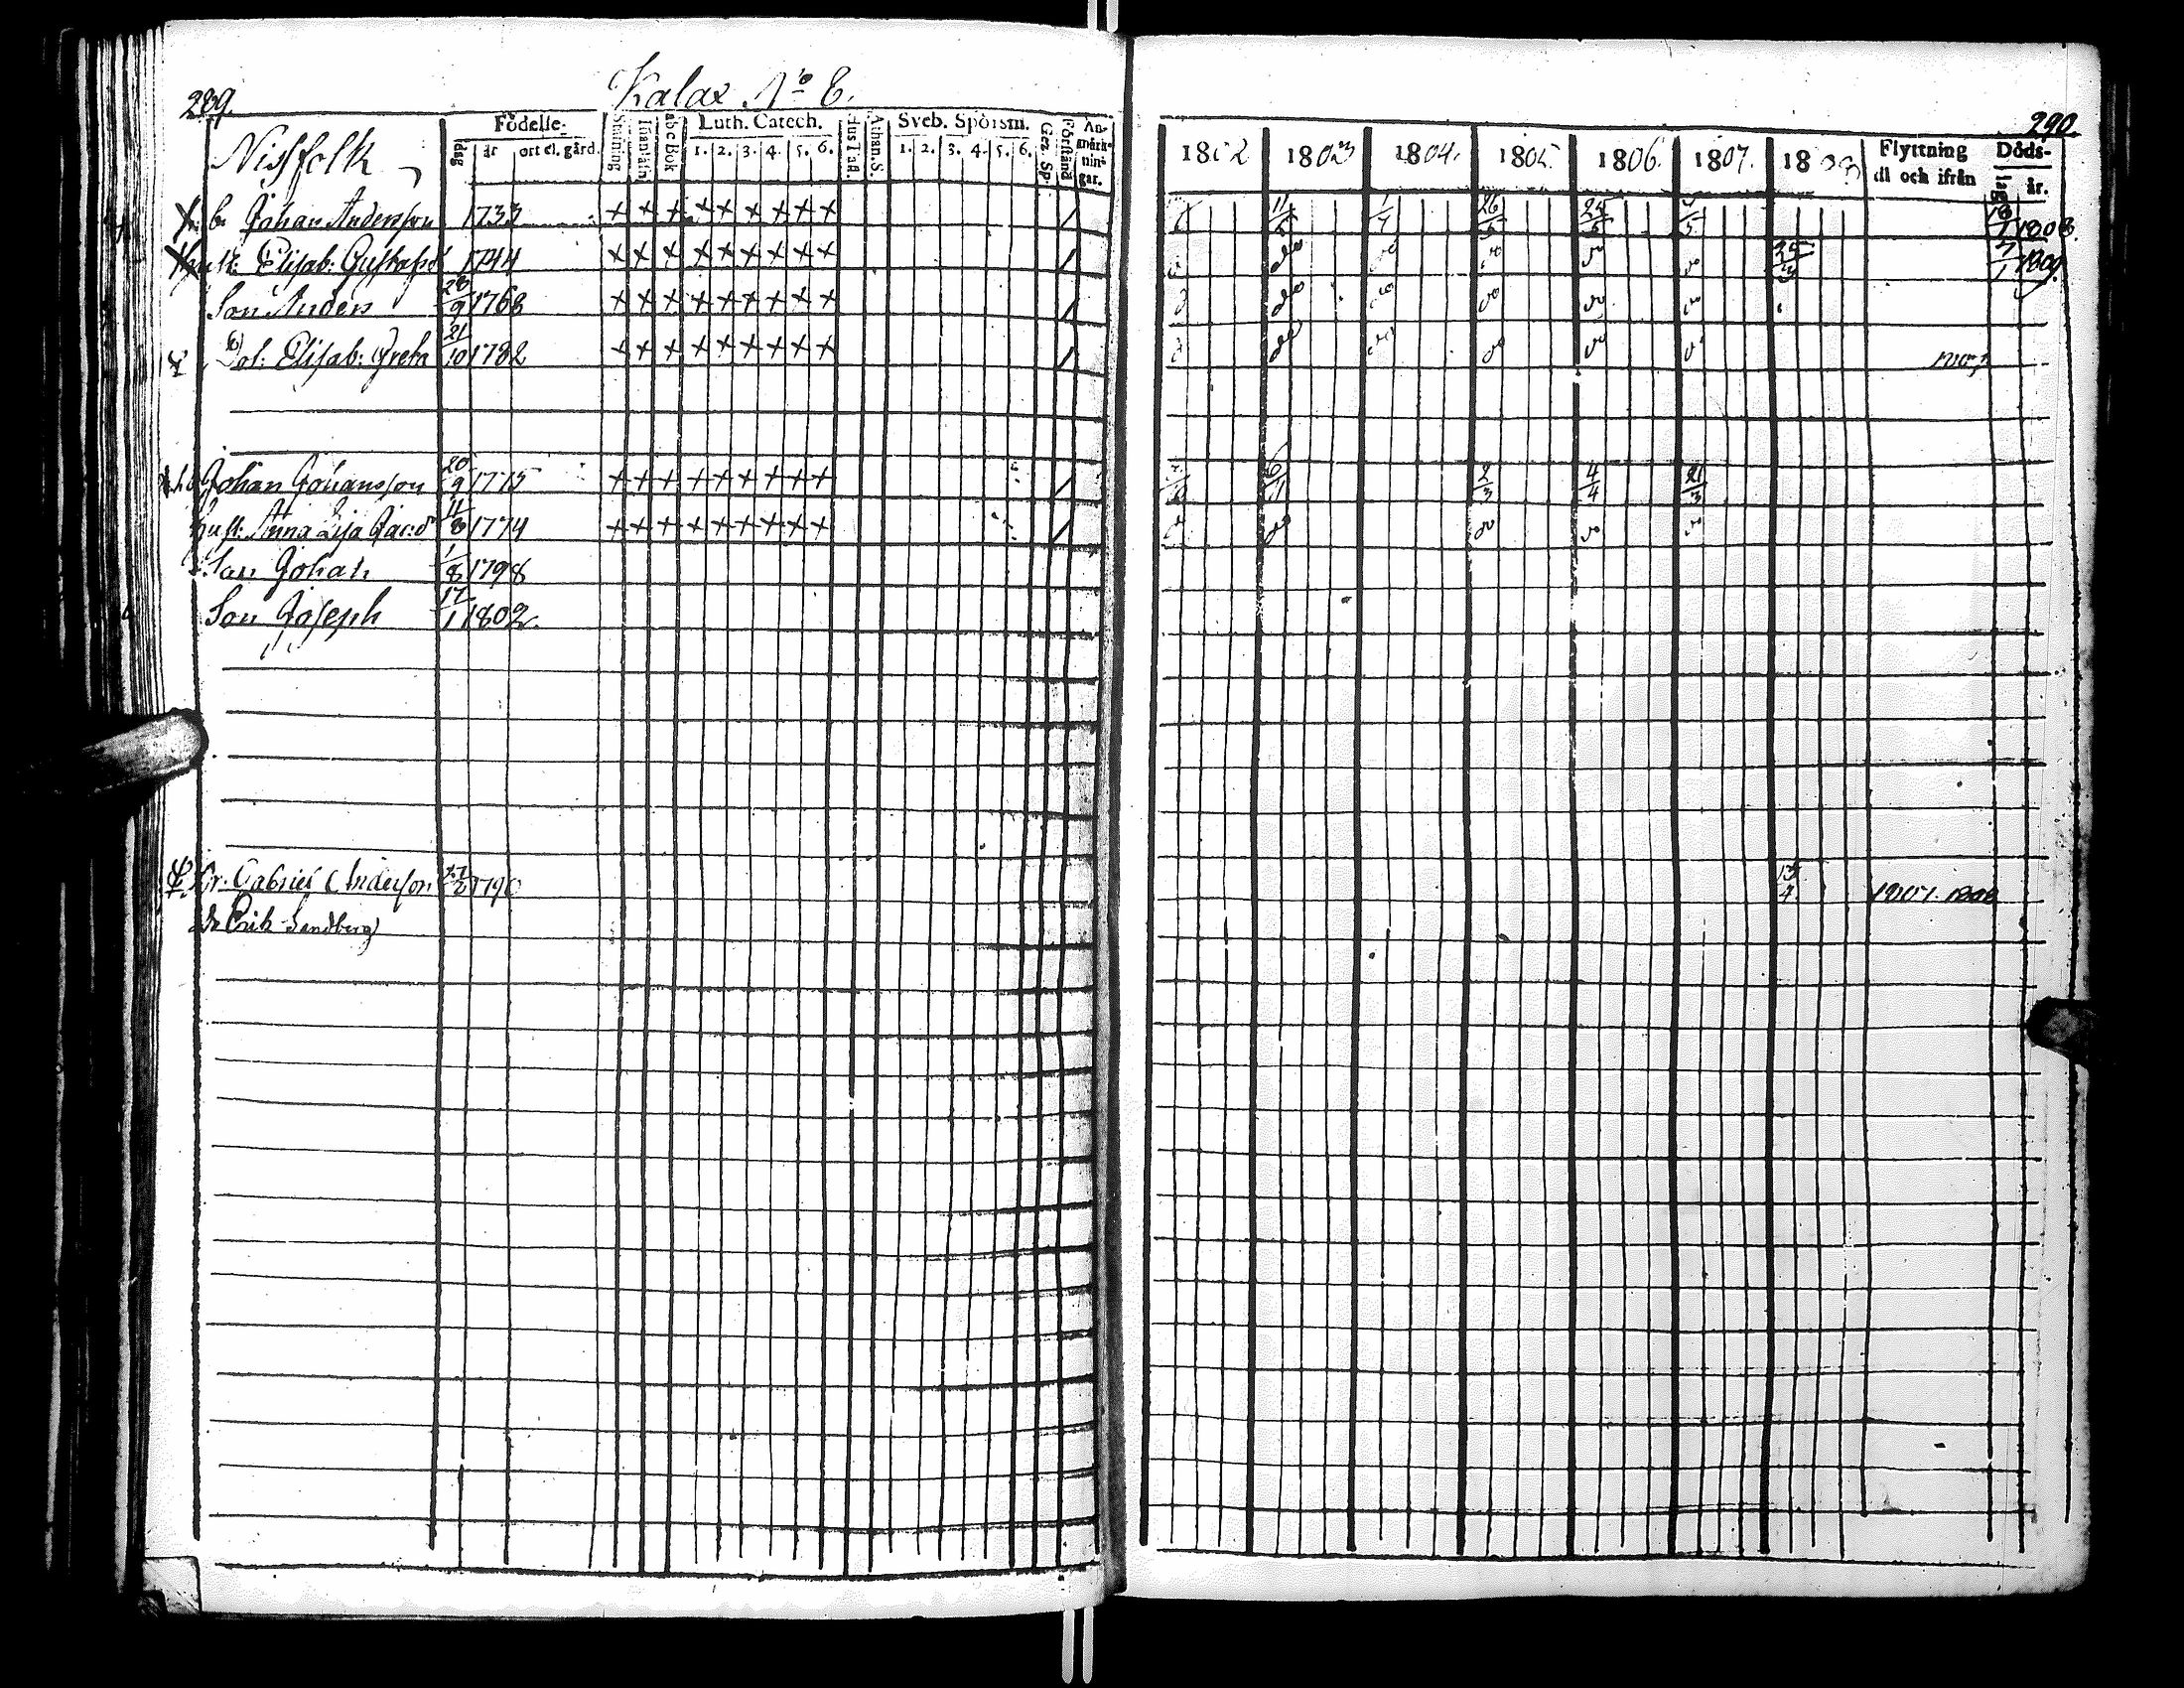 289.
Kalax No 8.
Nissfolk
Födelse-
dag
år
ort el. gård.
Stafning
Innanläsn
abc Bok
Luth. Catech.
1. 2. 3. 4. 5. 6.
Hus Tafl.
Athan. S.
Sveb. Spörsm.
1. 2. 3. 4. 5. 6.
Gez. Sp.
Förstånd
An-
märk-
nin-
gar.
B. Johan Andersson 1733 + + + + + + + + + /
Hust: Elisab: Gustafsd 1744 + + + + + + + + + /
Son Anders 28/9 1768 + + + + + + + + + /
Dot: Elisab: Greta 21/10 1782 + + + + + + + + + /
Johan Johansson 20/9 1775 + + + + + + + + + /
Hust: Anna Lisa Jac:dr 11/8 1774 + + + + + + + + + /
Son Johan 1/8 1798
Son Joseph 17/1 1802.
Dr: Gabriel Andersson 27/2 1790
Dr Erik Sandberg
290.
1802 1803 1804. 1805. 1806. 1807. 1808
Flyttning
till och ifrån
Döds-
dag
år.
11/6 1/4 26/5 25/5 1808.
25/3 7/1 1809.
1807
6/1 2/3 4/4 21/3
13/4 1807. 1808